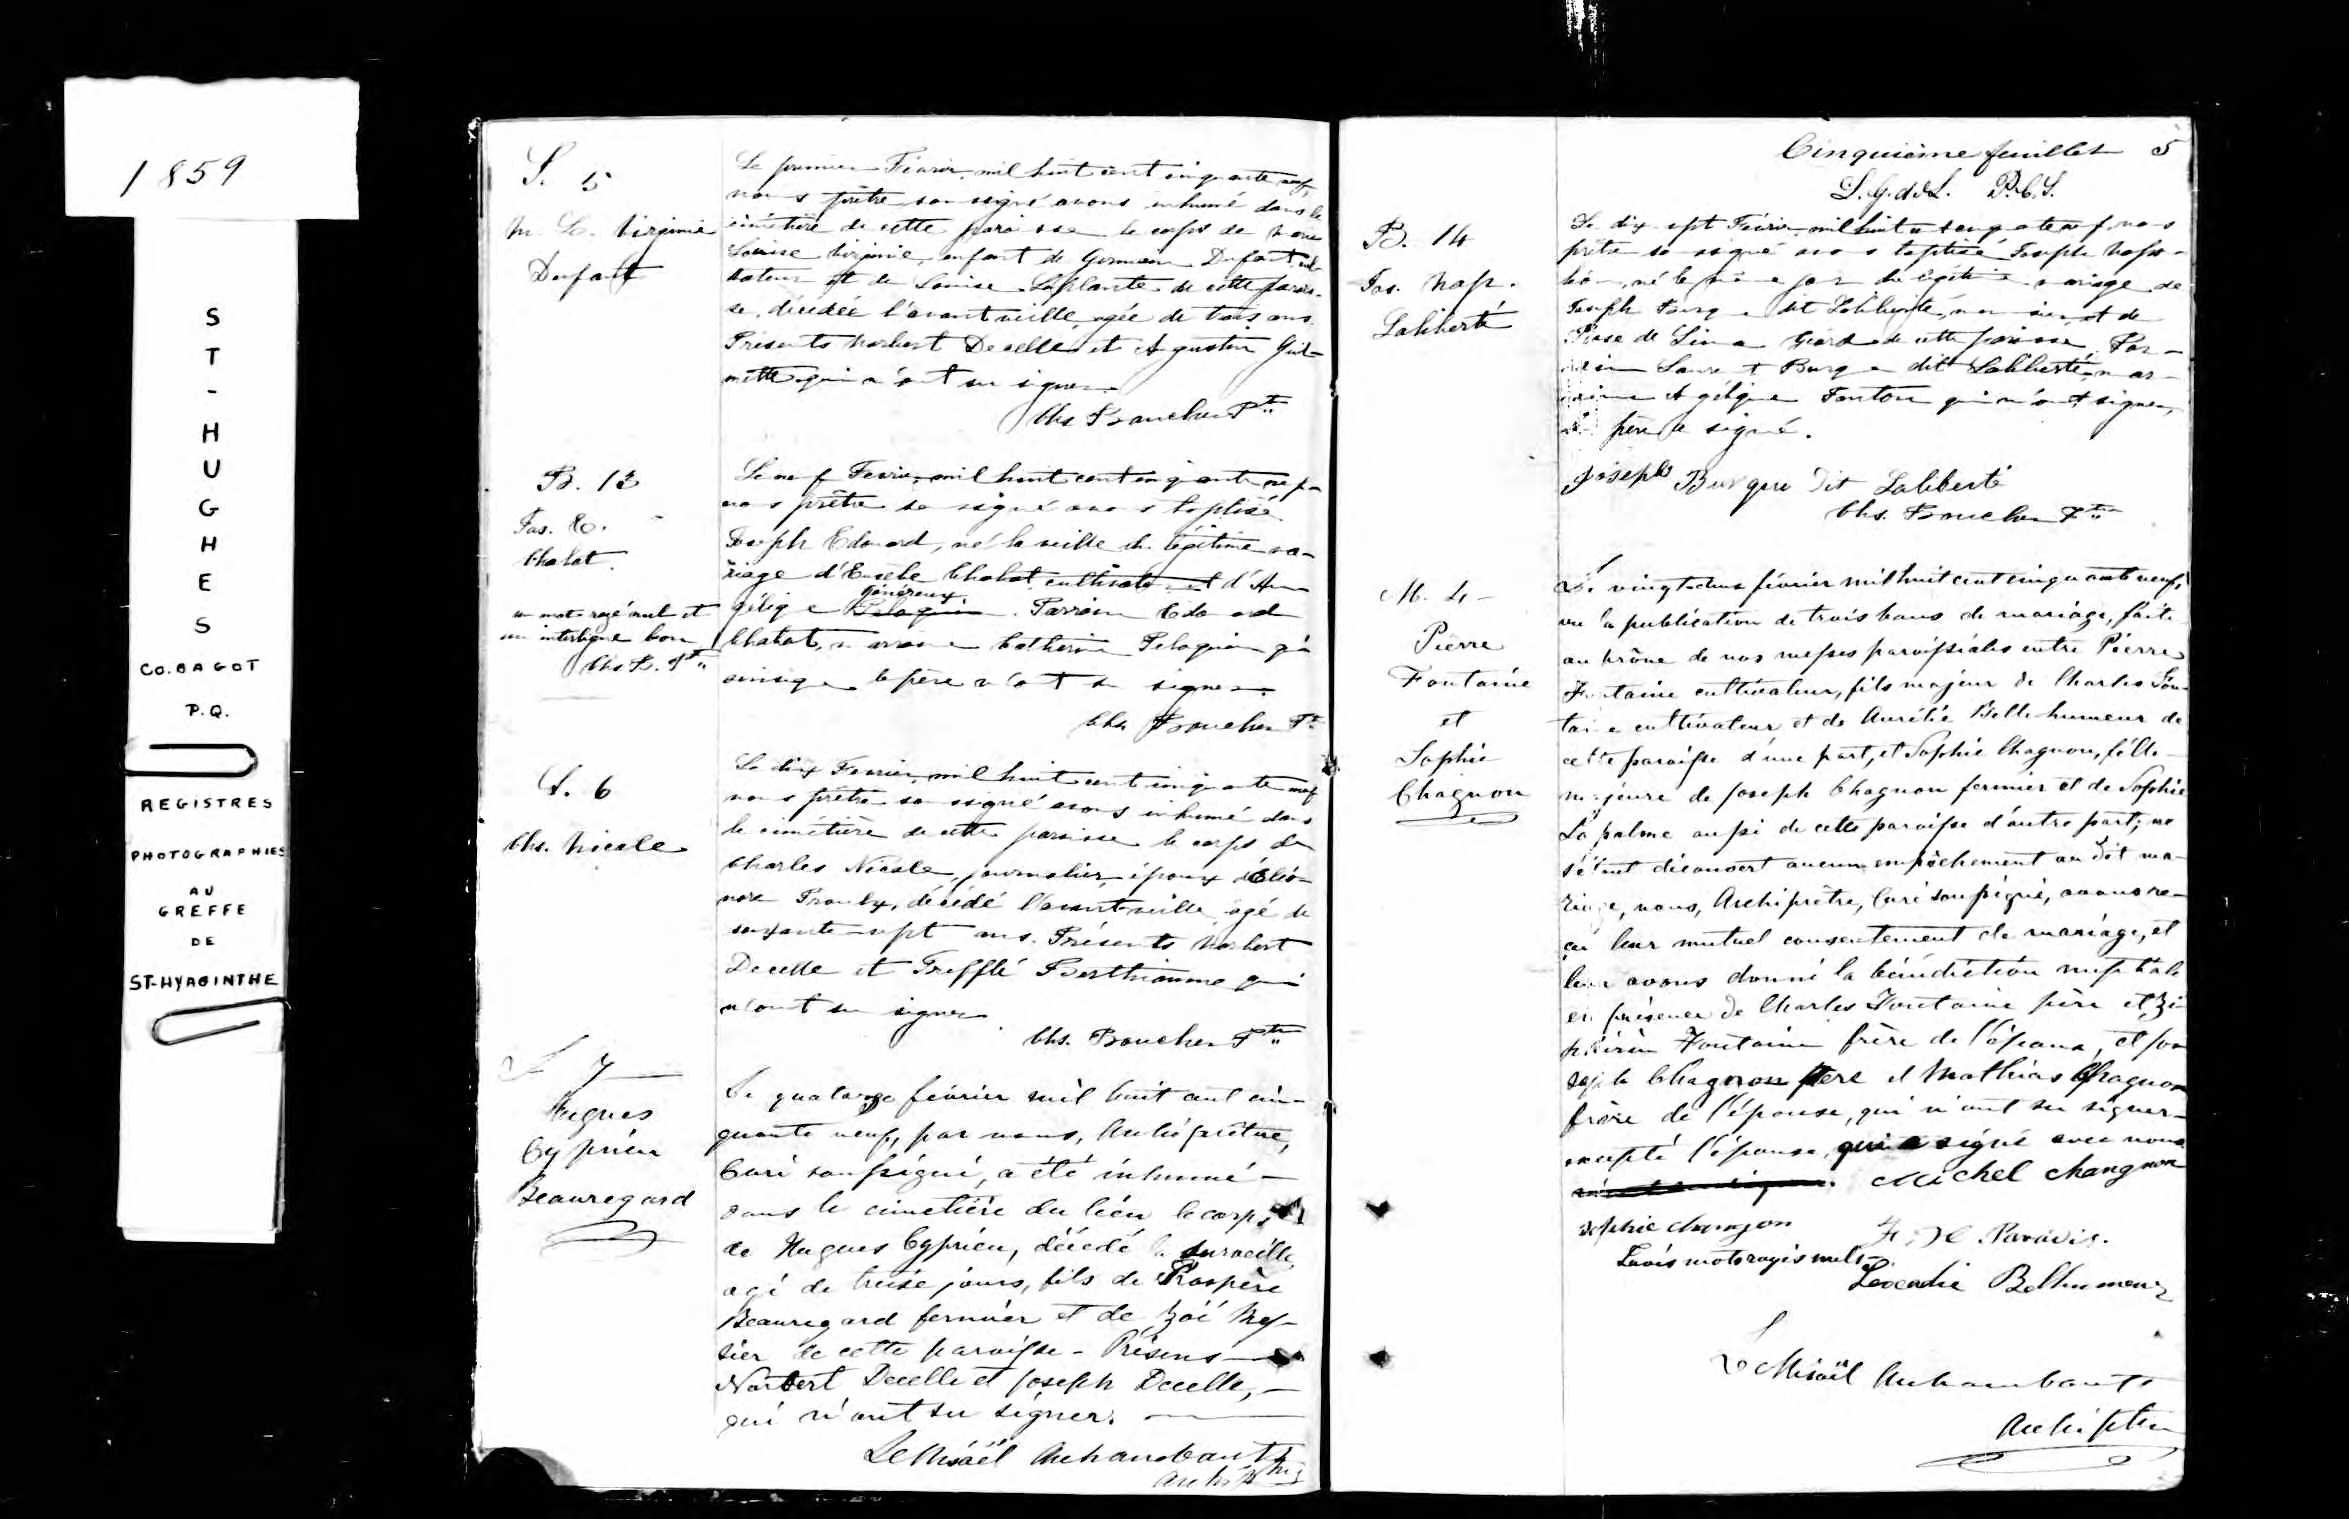 1859
S
T
-
H
U
G
H
E
S
CO. BAGOT
P.Q.
REGISTRES
PHOTOGRAPHIES
AU
GREFFE
DE
ST-HYACINTHE
S. 5
M. L. Virginie
Dufault
Le premier Février, mil huit cent cinquante neuf,
nous prêtre soussigné avons inhumé dans le
cimétière de cette paroisse le corps de
Louise Virginie, enfant de Germain Dufault
et de Louise Laplante de cette parois-
se, décédée l'avant veille, agée de trois ans.
Présents Norbert Decelle et Augustin
qui n'ont su signer.
Chs. Boucher Ptre
B. 13
Jos. E.
Chabot
un mot rayé nul et
un interligne bon
Chs. B. Ptre
Le neuf Fevrier, mil huit cent cinquante neuf
nous prêtre soussigné avons baptisé
Joseph Edouard, né la veille du légitime ma-
riage d'Eusèbe Chabot cultivateur et d'An-
généreux
gélique Pelaquin. Parrain Edouard
Chabot, marraine Catherine Pelaquin qui
ainsique le père n'ont su signer.
Chs. Boucher Ptre
S. 6
Chs. Nicole
Le dix Fevrier, mil huit cent cinquante neuf
nous prêtre soussigné avons inhumé dans
le cimétière de cette paroisse le corps de
Charles Nicole, journalier, époux d'Eléo-
nore Proulx, décédé l'avant-veille, agé de
soixante-sept ans. Présents Norbert
Decelle et Trefflé Berthiaume qui
n'ont su signer.
Chs. Boucher Ptre
S 7
Hugues
Cyprien
Beauregard
Le quatorze février mil huit cent cin-
quante neuf, par nous, Archiprêtre,
Curé soussigné, a été inhumé
dans le cimetière du lieu le corps
de Hugues Cyprien, décédé la surveille,
agé de treize jours, fils de Prospère
Beauregard fermier et de Zoé Mes-
sier de cette paroisse - Présens
Norbert Decelle et Joseph Decelle, -
qui n'ont su signer.
L Misaël Archambault
Archiptre
Cinquième feuillet 5
L.G.deL. P.C.S.
B. 14
Jos. Nap.
Laliberté
Le dix sept Février, mil huit cent cinquante neuf, nous
prêtre soussigné avons baptisé Joseph Napo-
léon, né le même jour du légitime mariage de
Joseph Burque dit Laliberté, et de
Rose de Lima de cette paroisse. Par-
rain Laurent Burque dit Laliberté, mar-
raine Angélique qui n'ont signer,
le père a signé.
Joseph Burque Dit Laliberté
Chs. Boucher Ptre
M. 4 -
Pierre
Fontaine
et
Sophie
Chagnon
Le vingt-deux février mil huit cent cinquante neuf,
vu la publication de trois bans de mariage, faite
au prône de nos messes paroissiales entre Pierre
Fontaine cultivateur, fils majeur de Charles Fon-
taine cultivateur et de Aurélie Belle-humeur de
cette paroisse d'une part, et Sophie Chagnon, fille
majeure de Joseph Chagnon fermier et de Sophie
Lapalme aussi de cette paroisse d'autre part; ne
s'étant découvert aucun empêchement au dit ma-
riage, nous, Archiprêtre, Curé soussigné, avons re-
çu leur mutuel consentement de mariage, et
leur avons donné la bénédiction nuptiale
en présence de Charles Fontaine père et Zé-
phirin Fontaine frère de l'époux, et Jo-
seph Chagnon père et Mathias Chagnon
frère de l'épouse, qui n'ont su signer
excepté l'épouse, qui a signé avec nous
Michel Changnon
sophie changon
Trois mots rayés nuls
Paradis.
Leocadie Bellhumeur
L Misaël Archambault
Archiptre